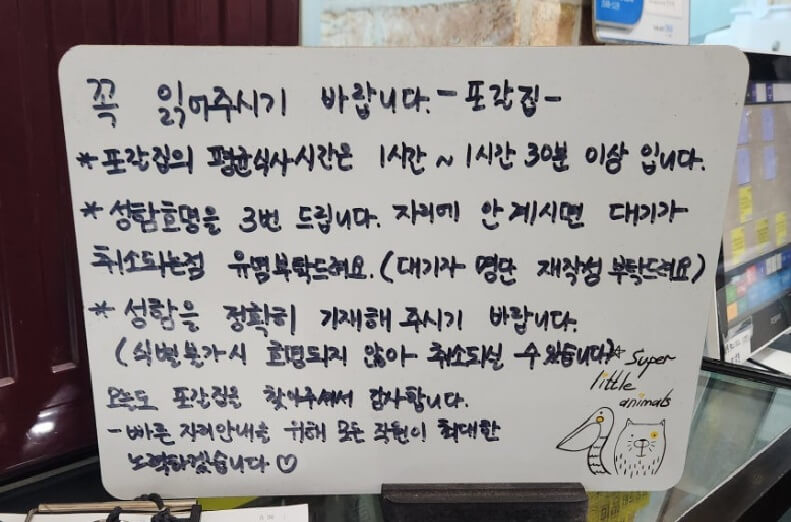 꼭 읽어주시기 바랍니다. - 포갈집 -
* 포갈집의 평균식사시간은 1시간 ~ 1시간 30분 이상 입니다.
* 성함호명을 3번 드립니다. 자리에 안계시면 대기가
취소되는점 유념부탁드려요. (대기자 명단 재작성 부탁드려요)
* 성함을 정확히 기재해 주시기 바랍니다.
(식별불가시 호명되지 않아 취소되실 수 있습니다)
오늘도 포갈집을 찾아주셔서 감사합니다.
- 빠른 자리안내를 위해 모든 직원이 최대한
노력하겠습니다 ♡
Super
little
animals